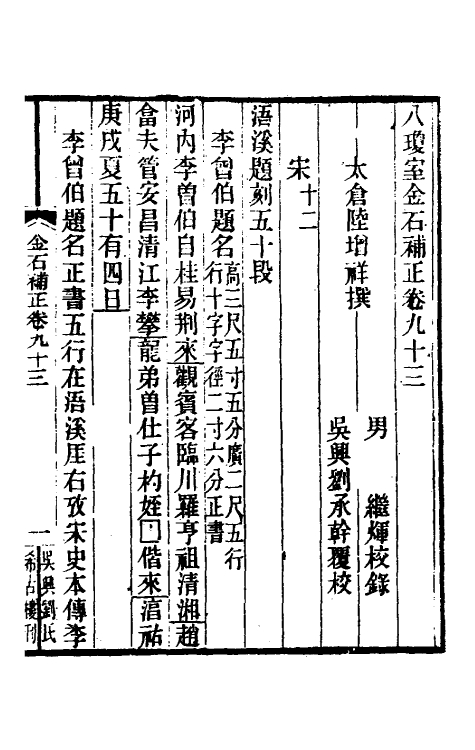 八瓊室金石補正卷九十三
太倉陸增祥撰
男 繼煇校錄
吳興劉承幹覆校
宋十二
浯溪題刻五十段
李曾伯題名高三尺五寸五分廣二尺五行行十字字徑二寸六分正書
河內李曾伯自桂易荆來觀賓客臨川羅亨祖清湘趙
畣夫管安昌清江李攀龍弟曾仕子杓姪囗偕來湻祐
庚戌夏五十有四日
李曾伯題名正書五行在浯溪厓右攷宋史本傳李
金石補正卷九十三
一
吳興劉氏
希古樓刊